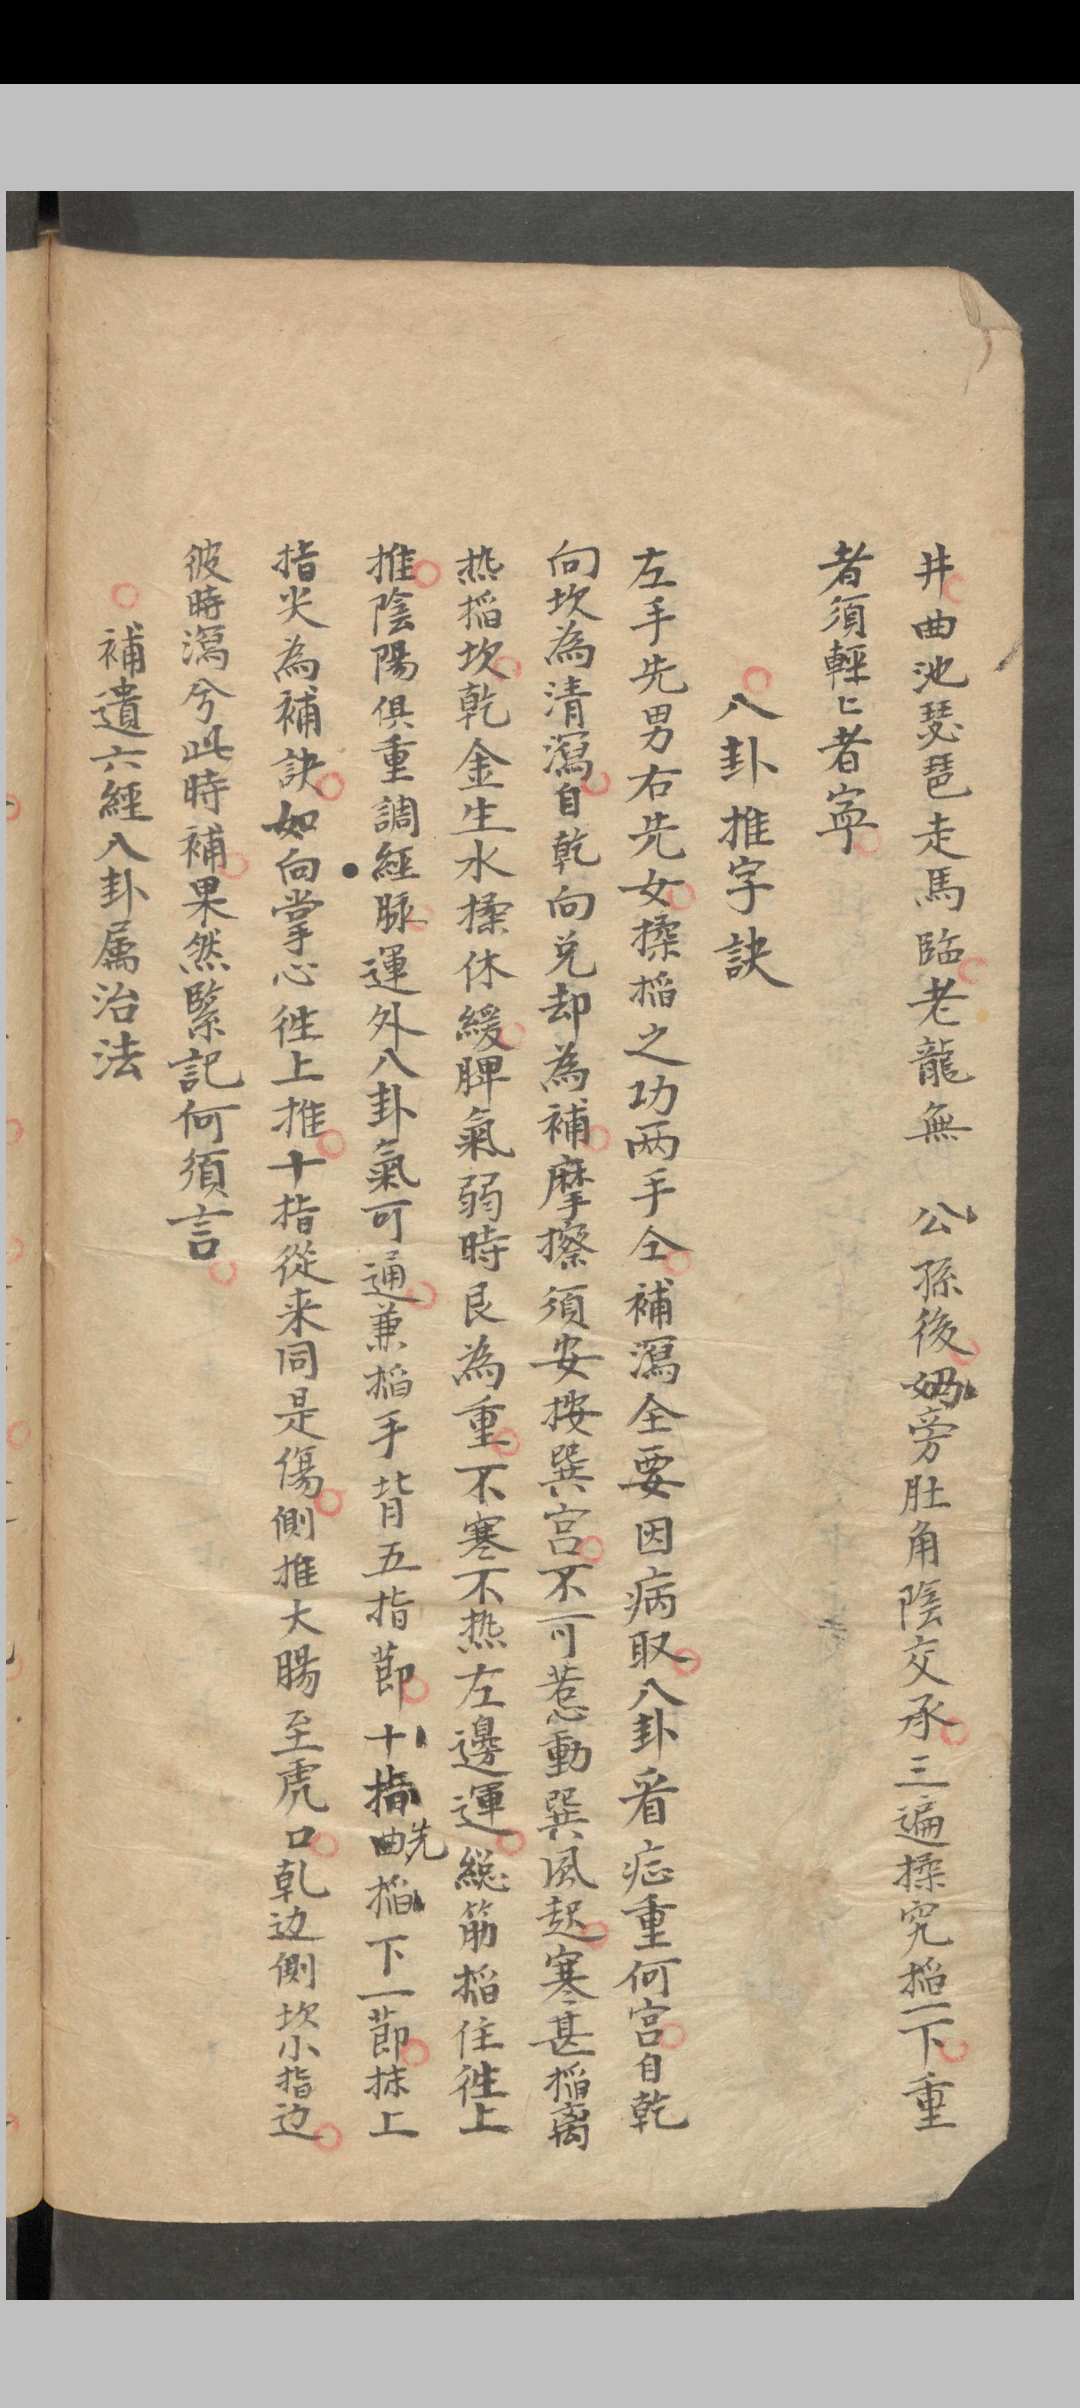 井曲池琵琶走馬臨老龍無公孫後旁肚角陰交承三遍揉究掐一下重
者須輕〻者寧
八卦推字訣
左手先男右先女揉掐之功兩手仝補瀉全要因病取八卦看症重何宮自乾
向坎為清瀉自乾向兌却為補摩擦須安按巽宮不可惹動巽風起寒甚掐离
热掐坎乾金生水揉休緩脾氣弱時艮為重不寒不热左邊運総筋掐住徃上
推陰陽俱重調經脉運外八卦氣可通兼掐手背五指節十指先曲掐下一節抹上
指尖為補訣如向掌心徃上推十指從来同是傷側推大腸至虎口乹边側坎小指边
彼時瀉兮此時補果然緊記何須言
補遺六經八卦属治法